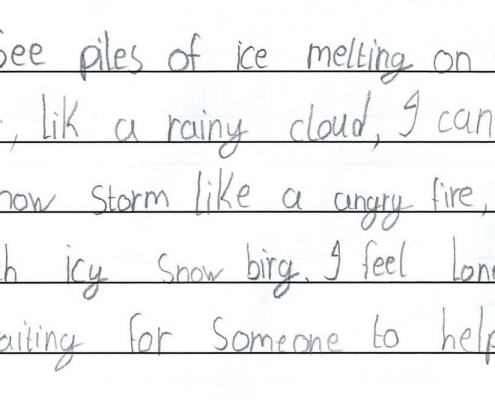 See piles of ice melting on
, lik a rainy cloud, I can
now storm like a angry fire,
h icy snow birg. I feel lone
aiting for someone to help